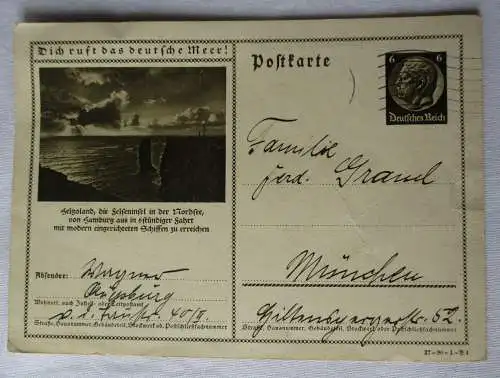 Dich ruft das deutsche Meer!
Helgoland, die Felseninsel in der Nordsee,
von Hamburg aus in 6stündiger Fahrt
mit modern eingerichteten Schiffen zu erreichen
Absender: Wagner
Augsburg
Wohnort, auch Zustell- oder Leitpostamt
40/II
Straße, Hausnummer, Gebäudeteil, Stockwerk od. Postschließfachnummer
Postkarte
6 6
Deutsches Reich
Familie
Ferd. Gramel
München
Hiltenspergerstr. 62.
Straße, Hausnummer, Gebäudeteil, Stockwerk oder Postschließfachnummer